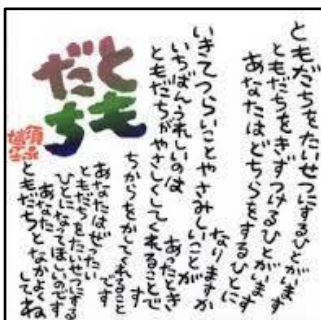 ともだちをたいせつにするひとがいます
ともだちをきずつけるひとがいます
あなたはどちらをするひとに
なりますか
いきてつらいことやさみしいことが
あったとき
いちばんうれしいのは
ともだちがやさしくしてくれることで
す
ちからをかしてくれること
です
とも
だち
あなたはぜったい
ともだちをたいせつにする
ひとになってほしいのです
あなた
ともだちとなかよくね
してね
須永
博士